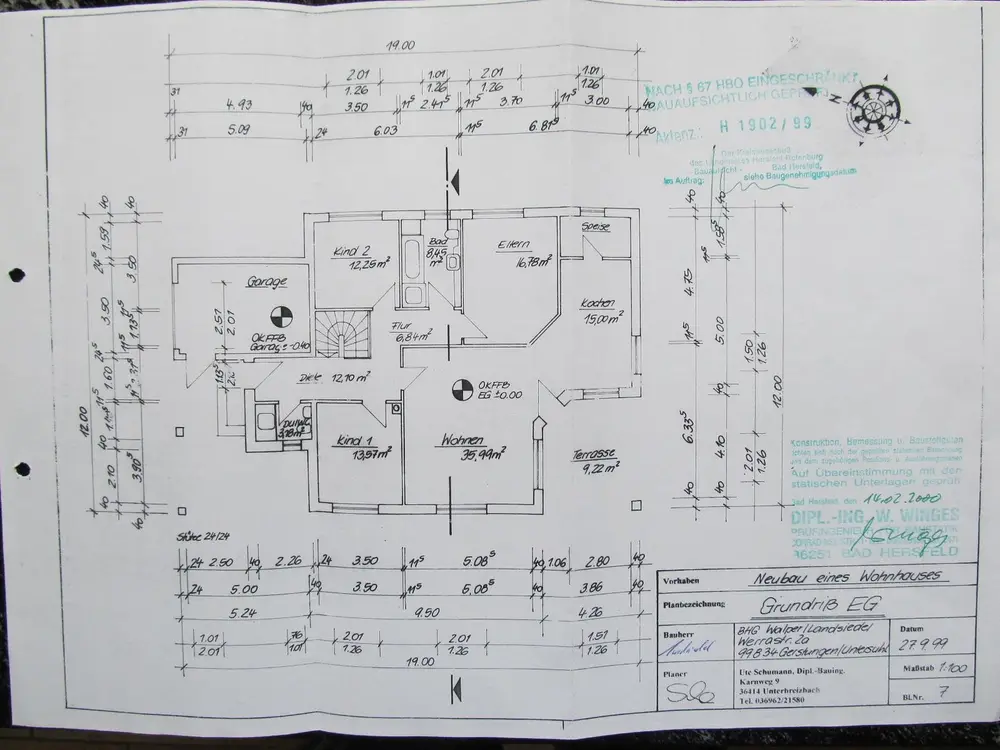 19.00
2.01 1.01 2.01 1.01
1.26 1.26 1.26 1.26
31 4.93 40 3.50 11⁵ 2.41⁵ 11⁵ 3.70 11⁵ 3.00 40
31 5.09 24 6.03 11⁵ 6.81⁵ 40
NACH § 67 HBO EINGESCHRÄNKT
BAUAUFSICHTLICH GEPRÜFT
Aktenz.: H 1902/99
Bad Hersfeld,
Im Auftrag: siehe Baugenehmigungsdatum
N
Speise
Kind 2
12,25m²
Bad
8,45
m²
Eltern
16,78m²
Garage
Kochen
15,00m²
Flur
6,84m²
OKFFB
Garage -0.40
2.51
2.01
Diele 12,10m²
OKFFB
EG ±0.00
Kind 1
13,97m²
Wohnen
35,99m²
Terrasse
9,22m²
12.00
40 1.59 24⁵ 3.50 24⁵ 1.60 11⁵ 40 2.10 40
40 3.50 11⁵ 1.13⁵ 11⁵ 11⁵ 3.90⁵ 40
40 4.75 11⁵ 6.33⁵ 40
40 1.58⁵ 11⁵ 5.00 40 4.10 40
1.50
1.26
2.01
1.26
12.00
Stütze 24/24
24 2.50 40 2.26 24 3.50 11⁵ 5.08⁵ 40 1.06 2.80 40
24 5.00 40 3.50 11⁵ 5.08⁵ 40 3.86 40
5.24 9.50 4.26
1.01 76 2.01 2.01 1.51
2.01 1.01 1.26 1.26 1.26
19.00
Konstruktion, Bemessung u. Baustoffgüten
Auf Übereinstimmung mit den
statischen Unterlagen geprüft
Bad Hersfeld, den 14.02.2000
DIPL.-ING. W. WINGES
36251 BAD HERSFELD
Vorhaben Neubau eines Wohnhauses
Planbezeichnung Grundriß EG
Bauherr BHG Walper/Landsiedel
Werrastr. 2a
99834 Gerstungen/Untersuhl
Datum
27.9.99
Planer Ute Schumann, Dipl.-Bauing.
Karnweg 9
36414 Unterbreizbach
Tel. 036962/21580
Maßstab 1:100
Bl.Nr. 7